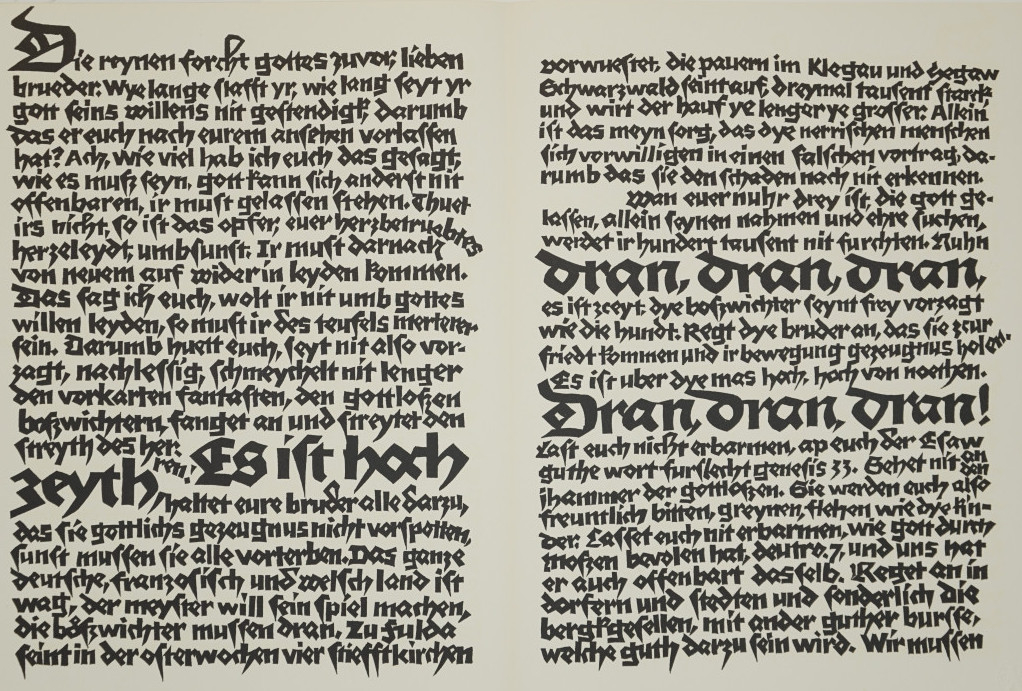 Die reynen forcht gottes zuvor, lieben
brueder. Wye lange slafft yr, wie lang seyt yr
gott seins willens nit gestendigk, darumb
das er euch nach eurem ansehen vorlassen
hat? Ach, wie viel hab ich euch das gesagt,
wie es muß seyn, gott kann sich anderst nit
offenbaren, ir must gelassen stehen. Thuet
irs nicht, so ist das opfer, euer herzbetruebtes
herzeleydt, umbsunst. Ir must darnach
von neuem auf wider in leyden kommen.
Das sag ich euch, wolt ir nit umb gottes
willen leyden, so must ir des teufels merterer
sein. Darumb huett euch, seyt nit also vor-
zagt, nachlessig, schmeychelt nit lenger
den vorkarten fantasten, den gottloßen
boßwichtern, fanget an und streytet den
streyth des herren! Es ist hoch
zeyth, haltet eure bruder alle darzu,
das sie gottlichs gezeugnus nicht vorspotten,
sunst mussen sie alle vorterben. Das ganze
deutsche, französisch und welsch land ist
wag, der meyster will sein spiel machen,
die bößwichter mussen dran. Zu fulda
seint in der osterwochen vier stiefftkirchen
vorwuestet, die pauern im Klegau und Hegaw
Schwarzwald seint auf, dreymal tausent starck
und wirt der hauf ye lenger ye grosser. Allein
ist das meyn sorg, das dye nerrischen menschen
sich vorwilligen in einen falschen vortrag, da-
rumb das sie den schaden nach nit erkennen.
Wan euer nuhr drey ist, die gott ge-
lassen, allein seynen nahmen und ehre suchen,
werdet ir hundert tausent nit furchten. Nuhn
dran, dran, dran,
es ist zceyt, dye boßwichter seynt frey vorzagt
wie die hundt. Regt dye bruder an, das sie zcur
friedt kommen und ir bewegung gezeugnus holen.
Es ist uber dye mas hoch, hoch von noethen.
Dran, dran, dran!
Last euch nicht erbarmen, ap euch der Esaw
guthe wort furslecht genesis 33. Sehet nit an den
jhammer der gottloßen. Sie werden euch also
freuntlich bitten, greynen, flehen wie dye kin-
der. Lasset euch nit erbarmen, wie gott durch
Moßen bevolen hat, deutro. 7, und uns hat
er auch offenbart dasselb. Reget an in
dorfern und stedten und sonderlich die
bergkgesellen, mit ander guther bursse,
welche guth darzu sein wird. Wir mussen